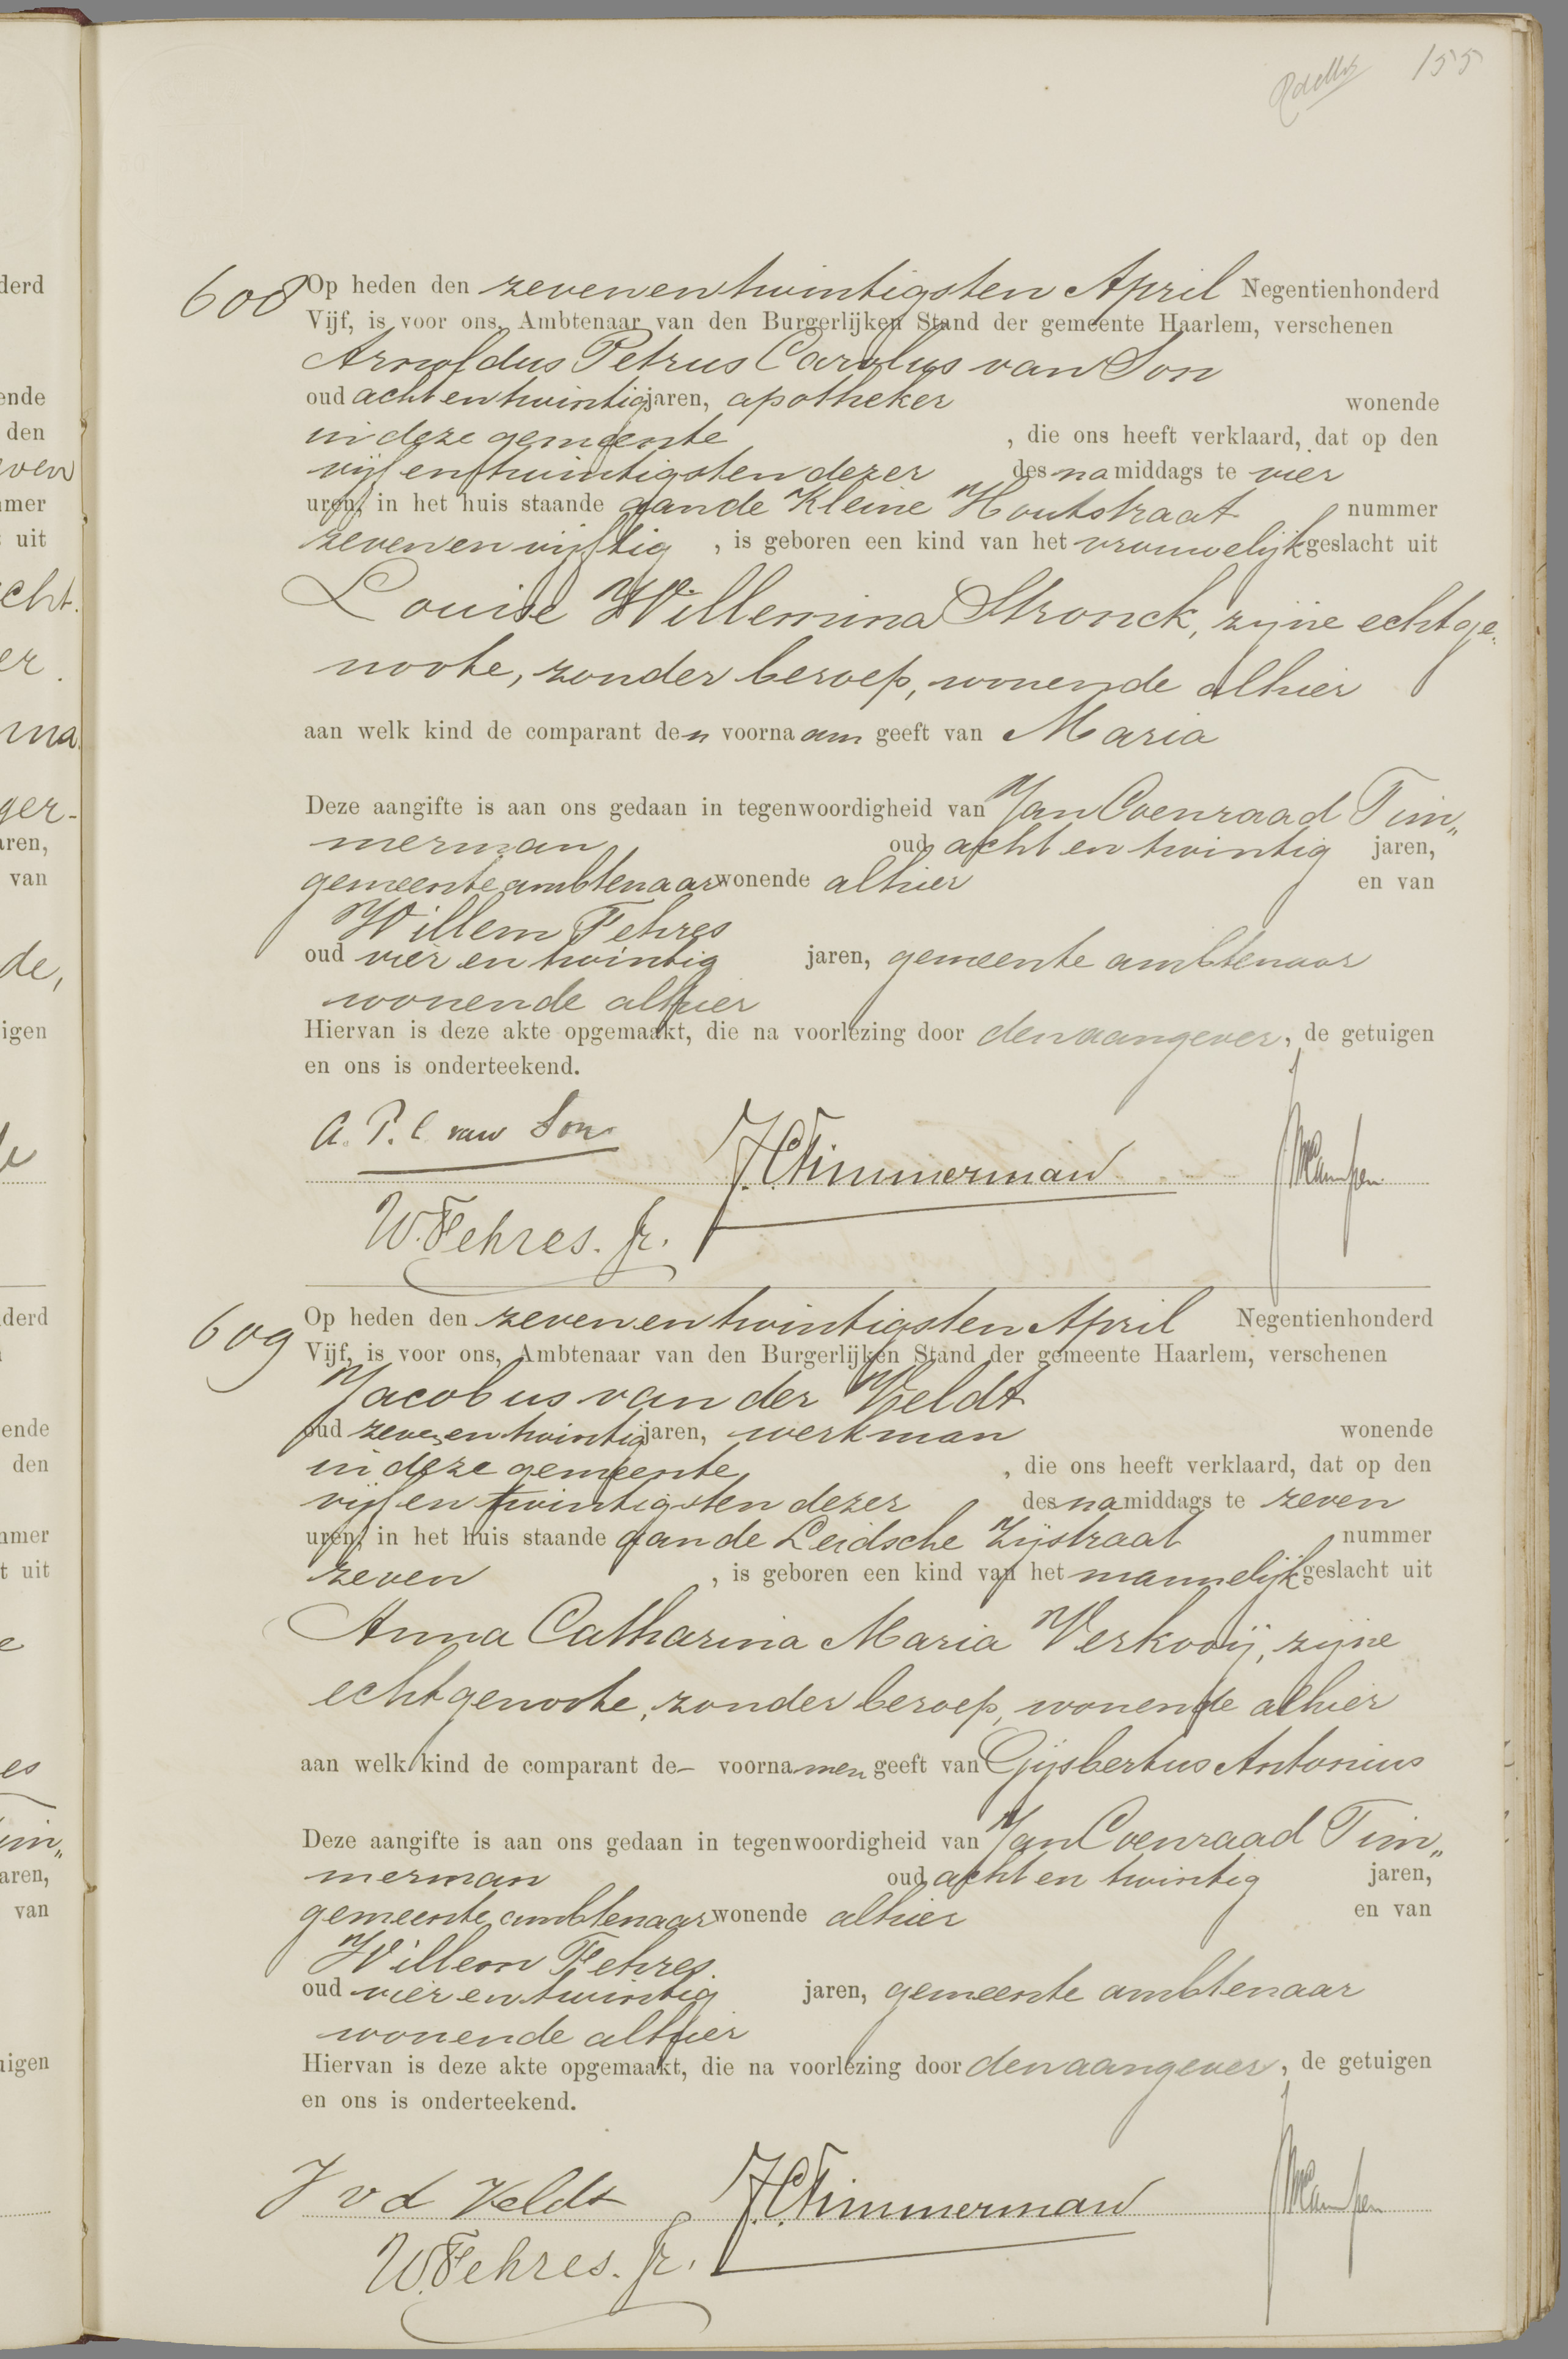 155
608 Op heden den zevenentwintigsten April Negentienhonderd
Vijf, is voor ons, Ambtenaar van den Burgerlijken Stand der gemeente Haarlem, verschenen
Arnoldus Petrus Carolus van Son
oud achtentwintig jaren, apotheker wonende
in deze gemeente, die ons heeft verklaard, dat op den
vijfentwintigsten dezer des namiddags te vier
uren, in het huis staande aan de Kleine Houtstraat nummer
zevenenvijftig, is geboren een kind van het vrouwelijk geslacht uit
Louise Willemina Stronck, zijne echtge-
noote, zonder beroep, wonende alhier
aan welk kind de comparant den voornaam geeft van Maria
Deze aangifte is aan ons gedaan in tegenwoordigheid van Jan Coenraad Tim„
merman oud achtentwintig jaren,
gemeenteambtenaar wonende alhier en van
Willem Fehres
oud vierentwintig jaren, gemeenteambtenaar
wonende alhier
Hiervan is deze akte opgemaakt, die na voorlezing door den aangever, de getuigen
en ons is onderteekend.
A. P. C. van Son J.C.Timmerman
W. Fehres. Jr.
609 Op heden den zevenentwintigsten April Negentienhonderd
Vijf, is voor ons, Ambtenaar van den Burgerlijken Stand der gemeente Haarlem, verschenen
Jacobus van der Veldt
oud zevenentwintig jaren, werkman wonende
in deze gemeente, die ons heeft verklaard, dat op den
vijfentwintigsten dezer des namiddags te zeven
uren, in het huis staande aan de Leidsche Zijstraat nummer
zeven, is geboren een kind van het mannelijk geslacht uit
Anna Catharina Maria Verkooij, zijne
echtgenoote, zonder beroep, wonende alhier
aan welk kind de comparant de– voornamen geeft van Gijsbertus Antonius
Deze aangifte is aan ons gedaan in tegenwoordigheid van Jan Coenraad Tim„
merman oud achtentwintig jaren,
gemeenteambtenaar wonende alhier en van
Willem Fehres
oud vierentwintig jaren, gemeenteambtenaar
wonende alhier
Hiervan is deze akte opgemaakt, die na voorlezing door den aangever, de getuigen
en ons is onderteekend.
J v d Veldt J.C.Timmerman
W. Fehres. Jr.